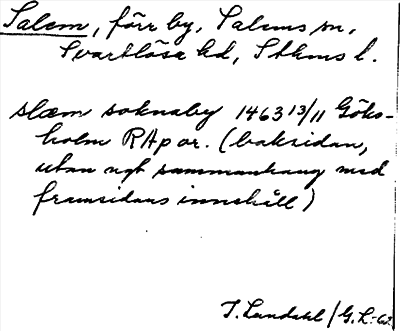 Salem, förr by, Salems sn,
Svartlösa hd, Sthms l.
slæm soknaby 1463 13/11 Göks-
holm RAp or. (baksidan,
utan ngt sammanhang med
framsidans innehåll)
I. Lundahl / G.L-62